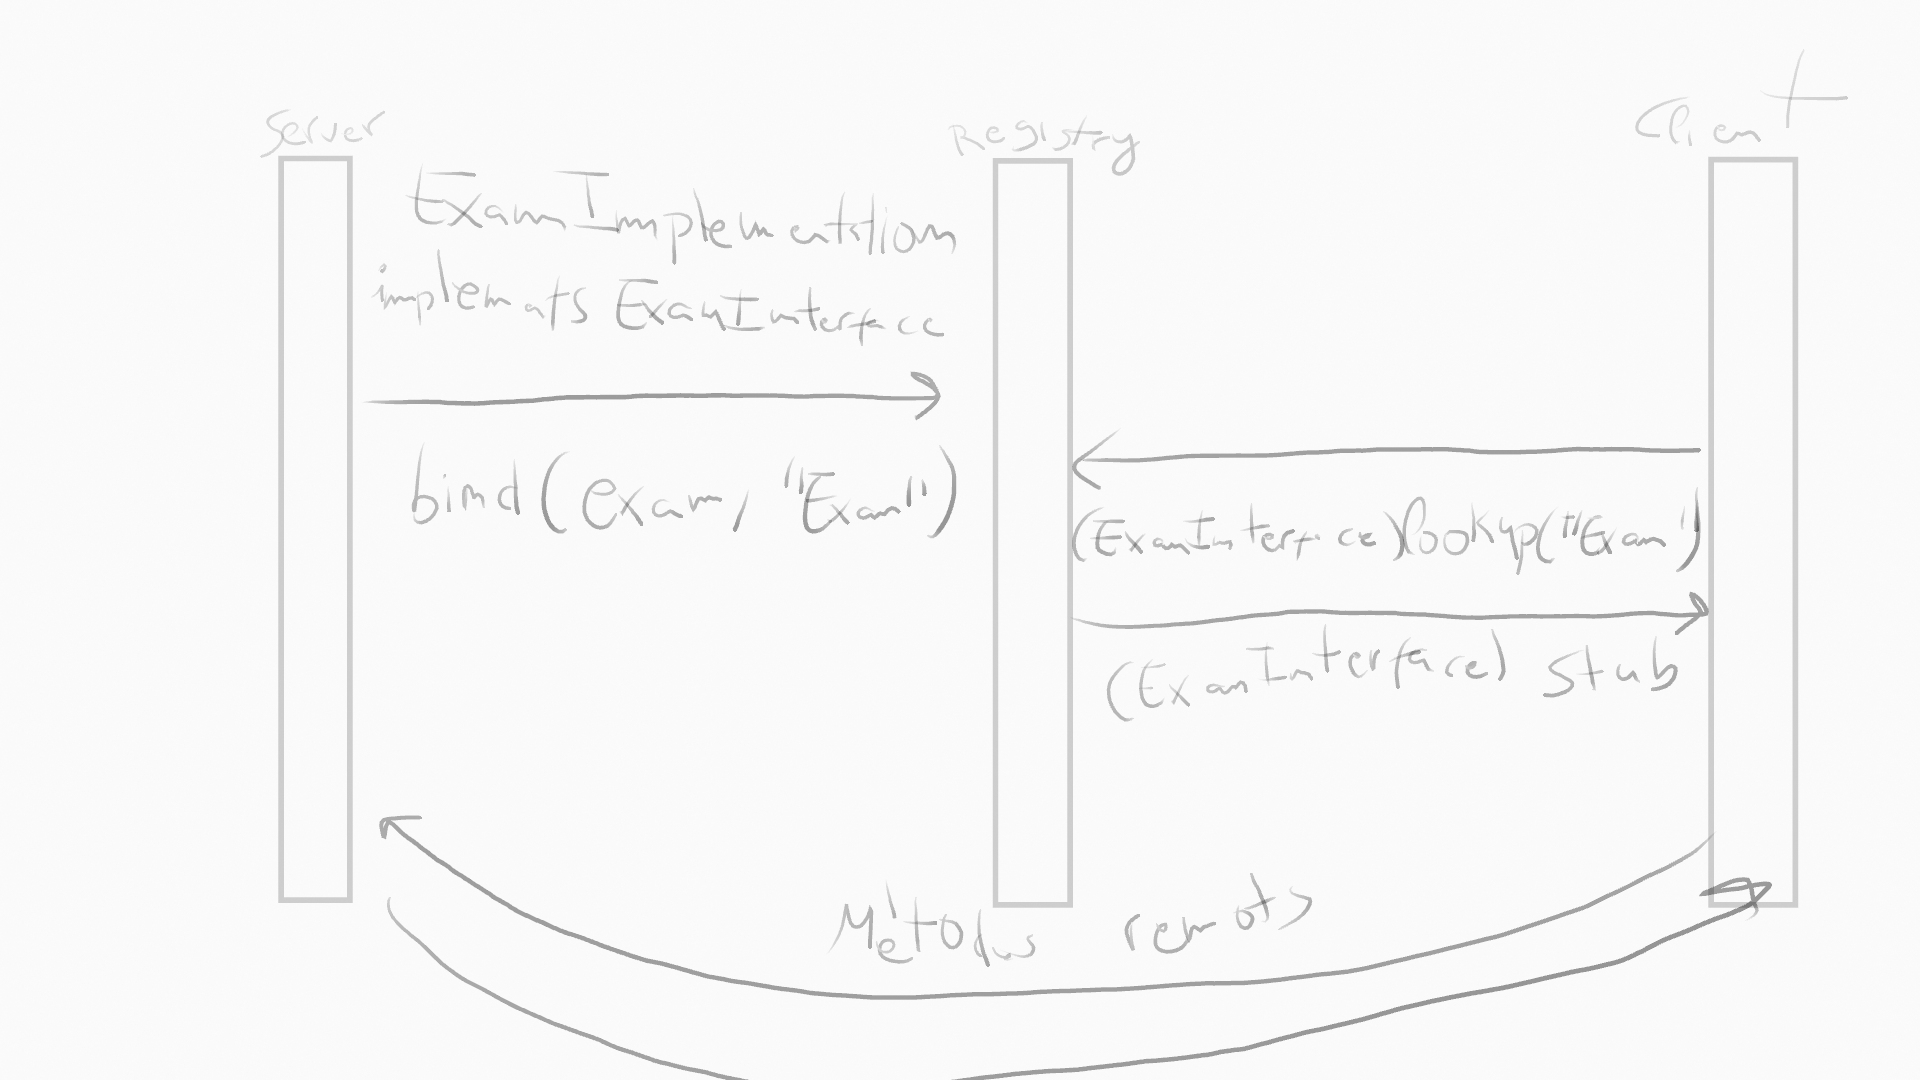 Server
Registry
Client
ExamImplementation
implements ExamInterface
bind(exam, "Exam")
(ExamInterface)lookup("Exam")
(ExamInterface) stub
Métodus remots